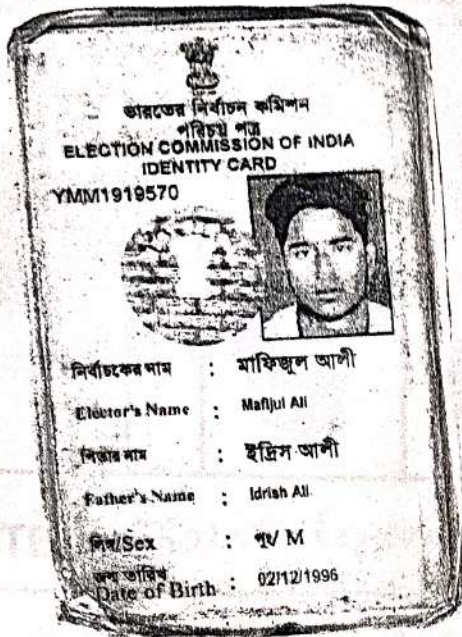 ভারতের নির্বাচন কমিশন
পরিচয় পত্র
ELECTION COMMISSION OF INDIA
IDENTITY CARD
YMM1919570
নির্বাচকের নাম : মাফিজুল আলী
Elector's Name : Mafijul Ali
পিতার নাম : ইদ্রিস আলী
Father's Name : Idrish Ali
লিঙ্গ/Sex : পুং/ M
জন্ম তারিখ
Date of Birth : 02/12/1996